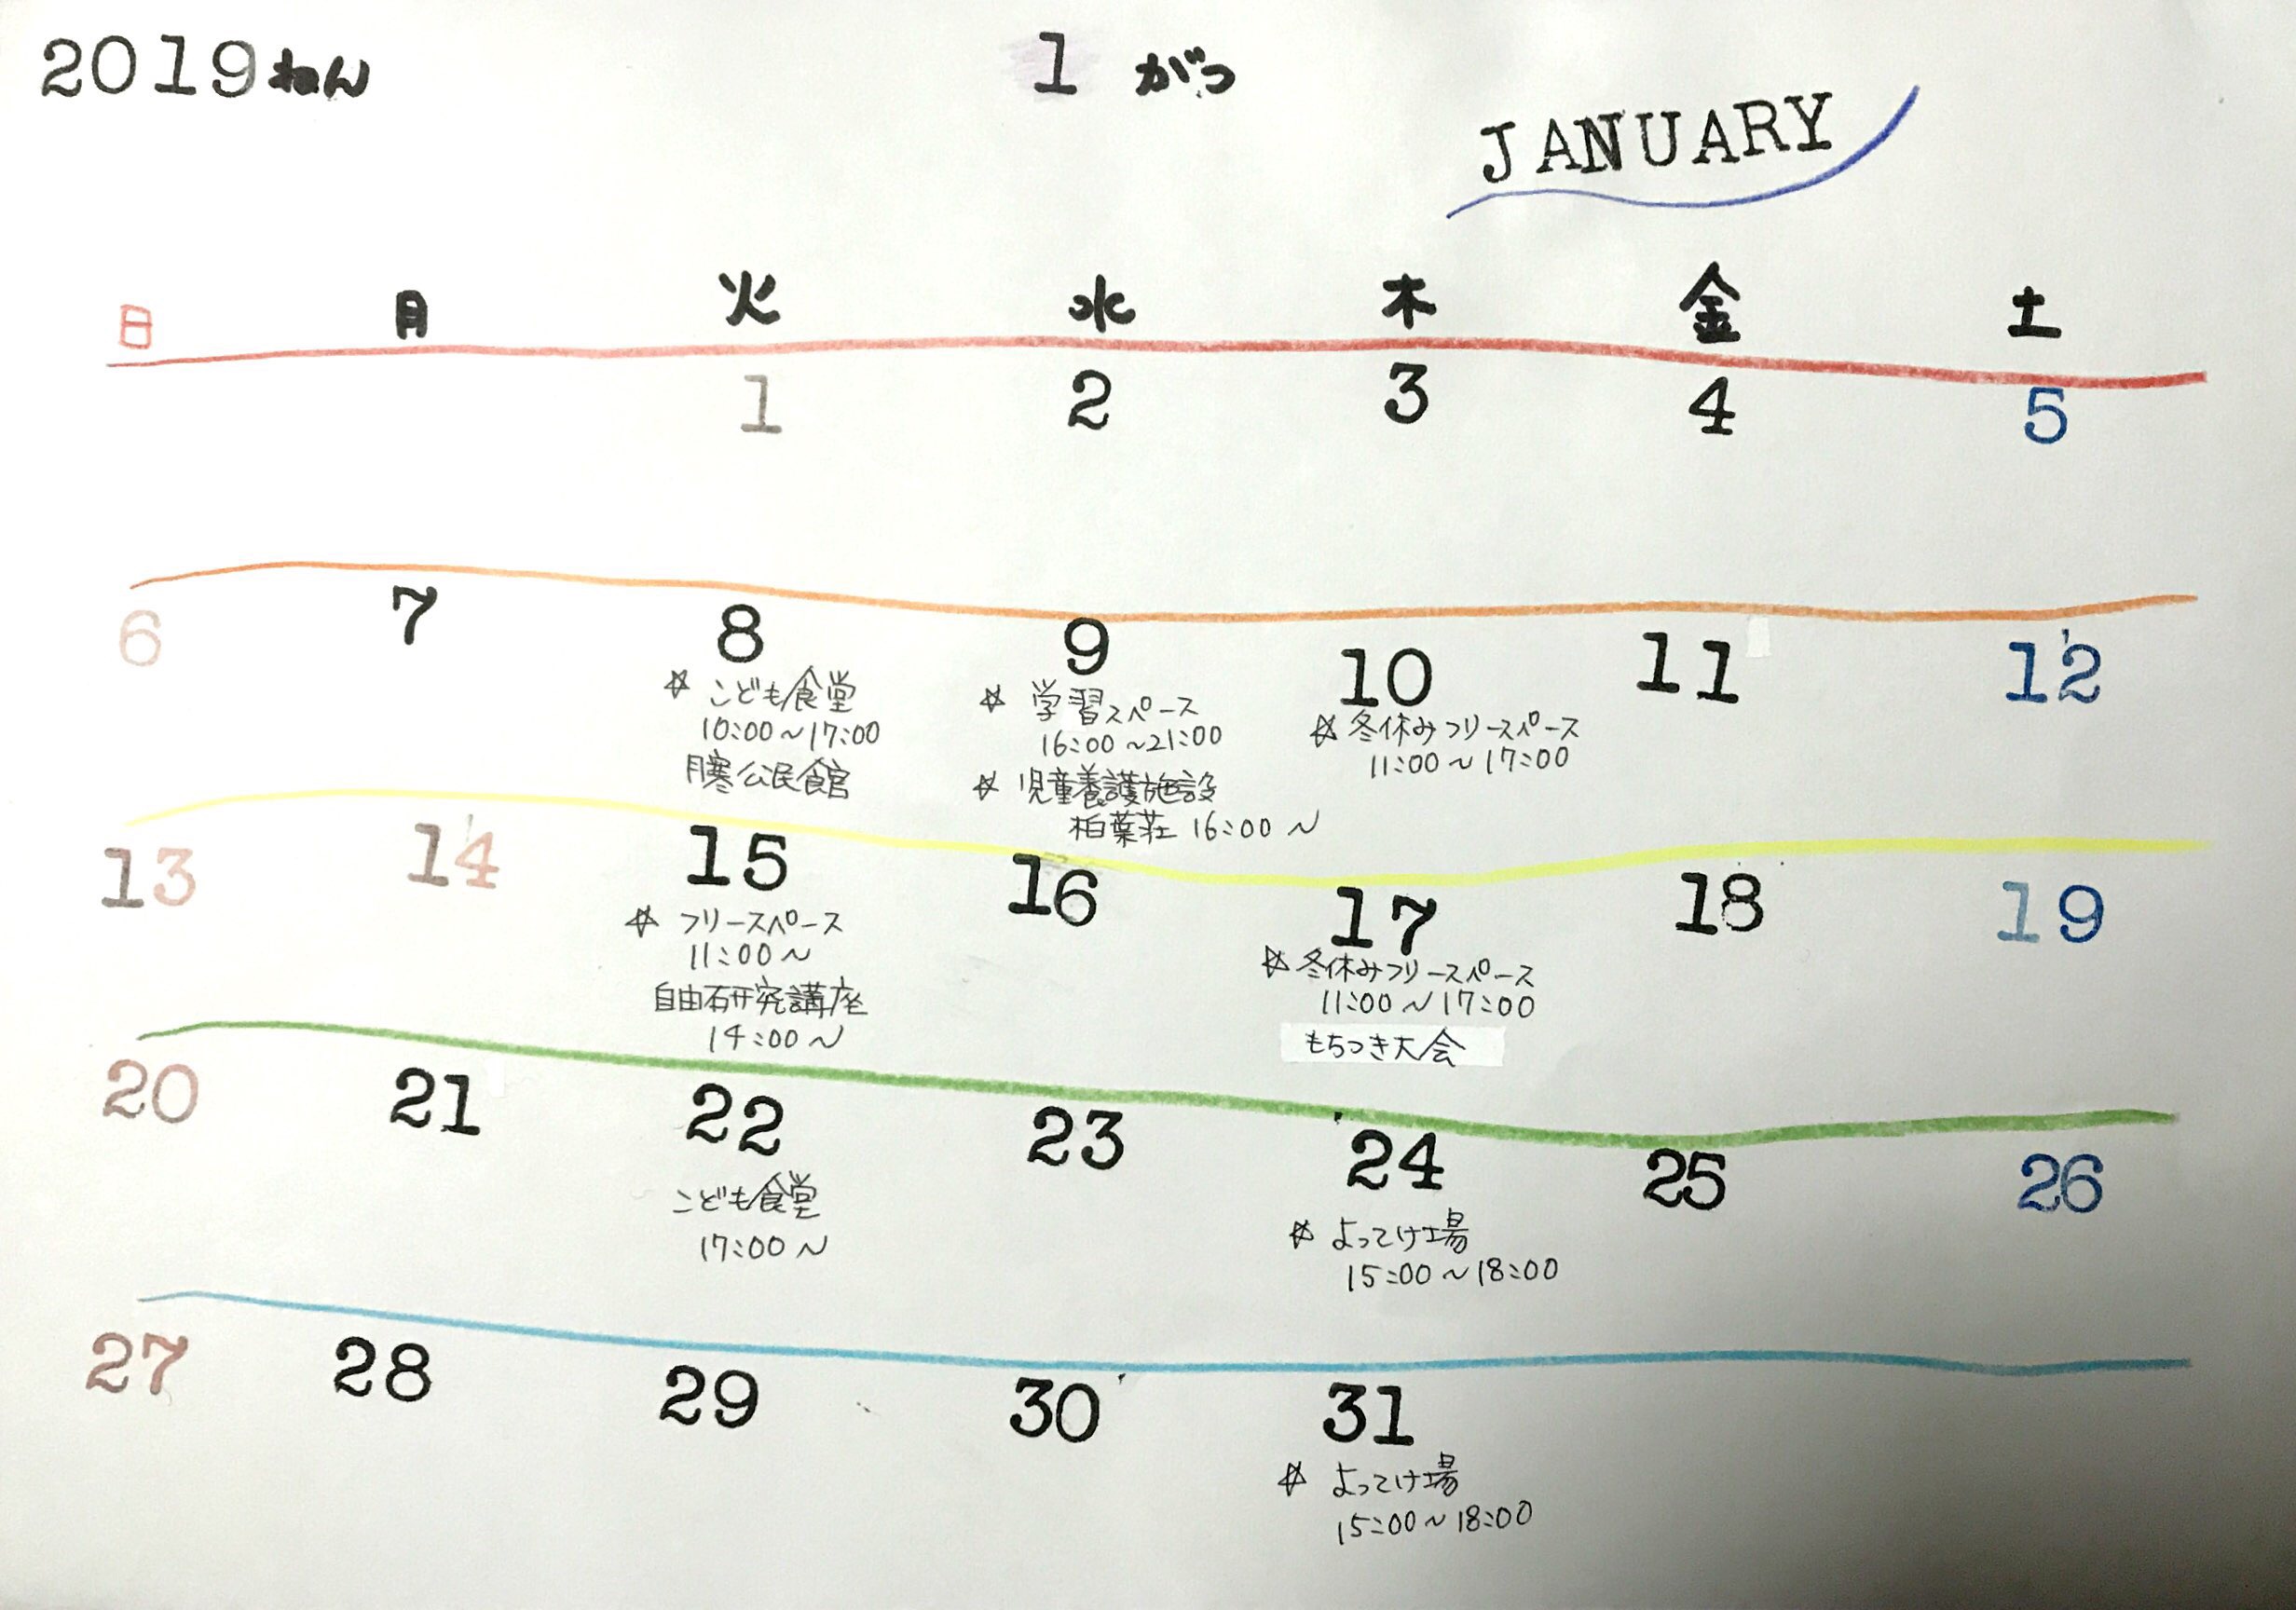 2019ねん
1 がつ
JANUARY
日 月 火 水 木 金 土
1 2 3 4 5
6 7 8 9 10 11 12
☆ こども食堂
10:00〜17:00
月寒公民食館
☆ 学習スペース
16:00〜21:00
☆ 児童養護施設
柏葉荘 16:00〜
☆ 冬休みフリースペース
11:00〜17:00
13 14 15 16 17 18 19
☆ フリースペース
11:00〜
自由研究講座
14:00〜
☆ 冬休みフリースペース
11:00〜17:00
もちつき大会
20 21 22 23 24 25 26
こども食堂
17:00〜
☆ よってけ場
15:00〜18:00
27 28 29 30 31
☆ よってけ場
15:00〜18:00